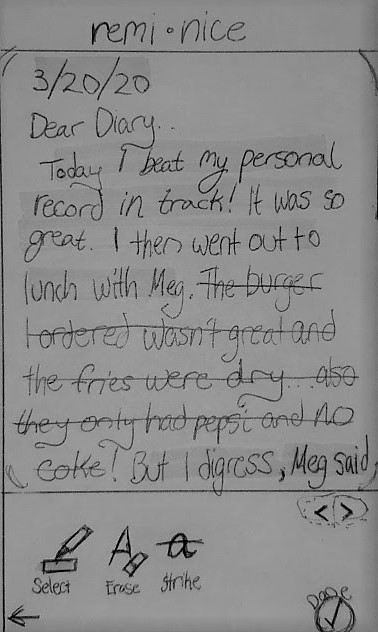 remi•nice
3/20/20
Dear Diary..
Today I beat my personal
record in track! It was so
great. I then went out to
lunch with Meg. The burger
I ordered wasn't great and
the fries were dry...also
they only had pepsi and no
coke! But I digress, Meg said,
< >
A a
Select Erase Strike
Done